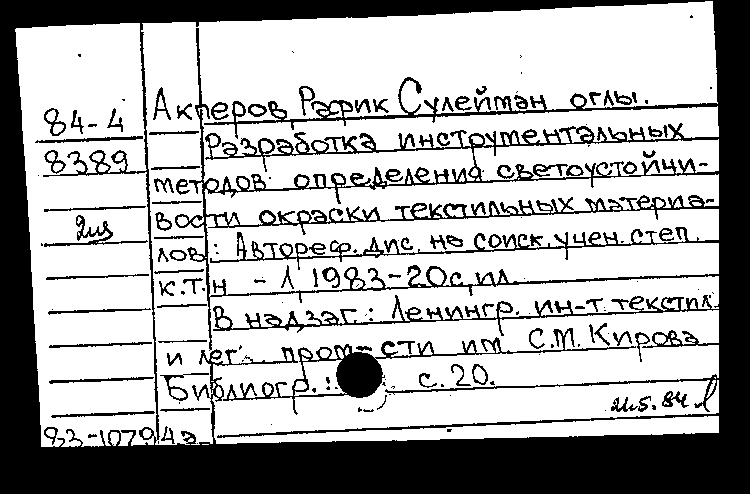 84-4 Акперов Рафик Сулейман оглы.
8389 Разработка инструментальных
методов определения светоустойчи-
вости окраски текстильных материа-
лов: Автореф. дис. на соиск. учен. степ.
к.т.н - Л, 1983-20с, ил.
В надзаг.: Ленингр. ин-т. текстил.
и лег. пром-сти им. С.М. Кирова
Библиогр.: с. 20.
21.5.84
83-10794а